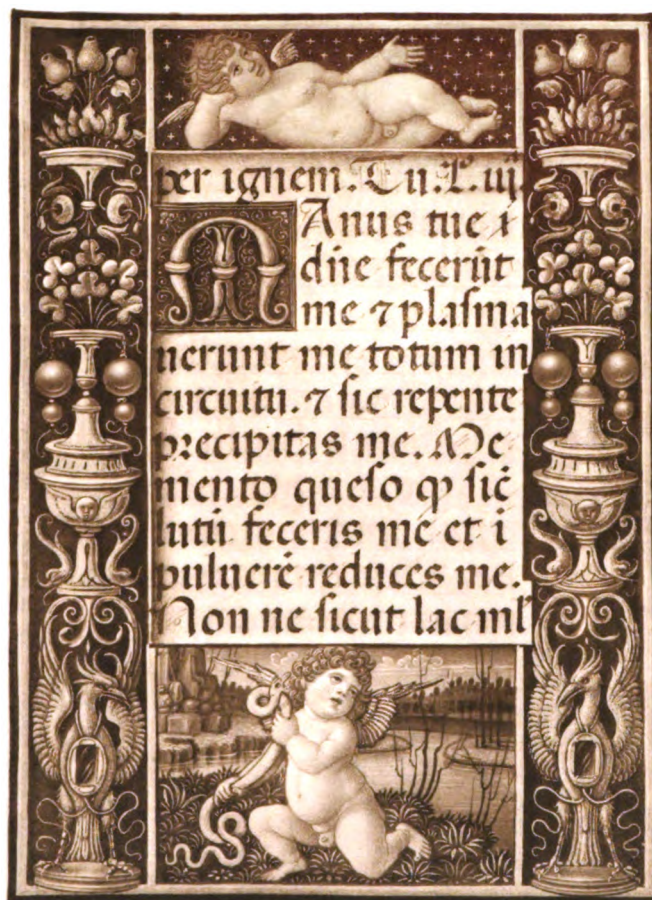 per ignem. Tu. L. iij.
MAnus tue i
dñe fecerūt
me ⁊ plaſma
uerunt me totum in
circuitu. ⁊ ſic repente
precipitas me. Me
mento queſo qꝫ ſic̄
lutū feceris me et i
puluerē reduces me.
Non ne ſicut lac ml